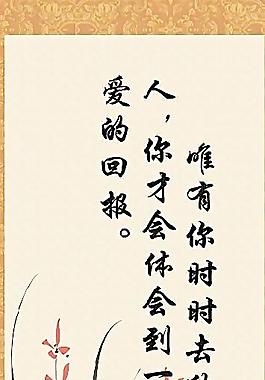 唯有你时时去
人，你才会体会到
爱的回报。